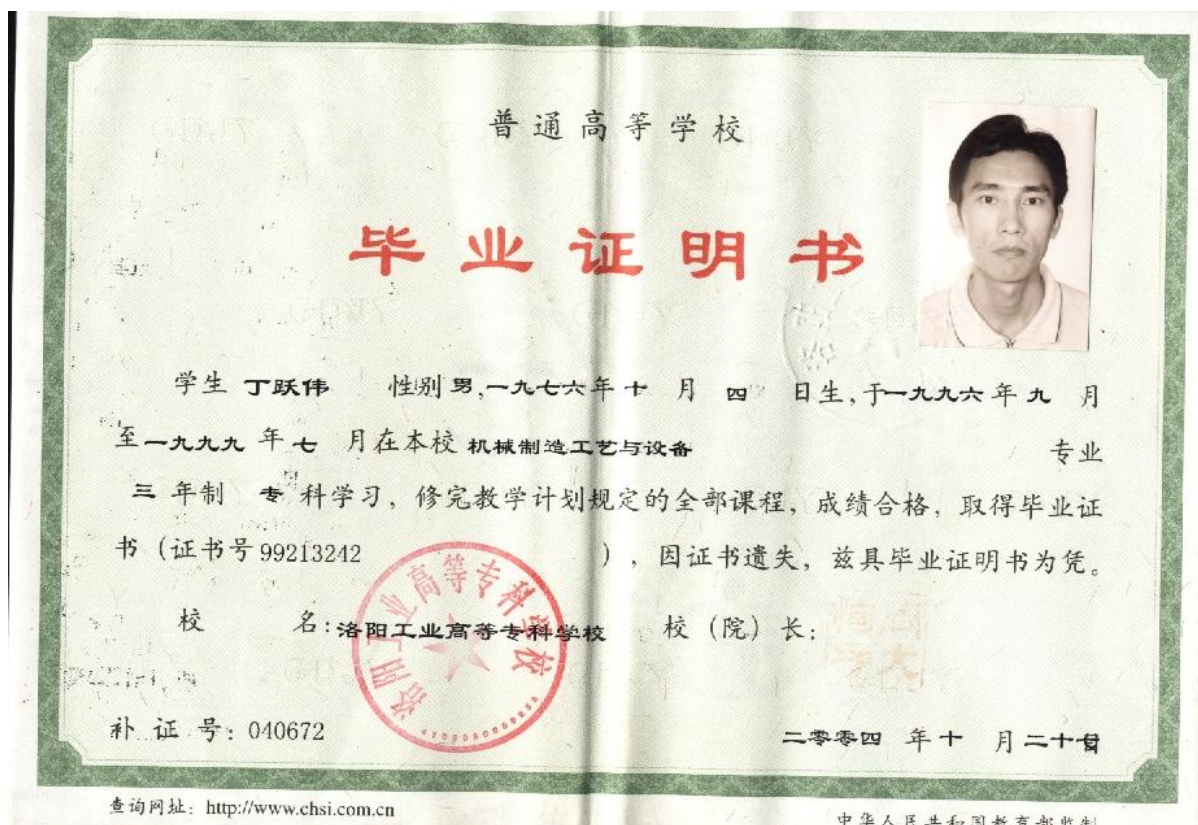 普通高等学校
毕业证明书
学生 丁跃伟 性别 男,一九七六年十月 四 日生,于一九九六年九月
至一九九九年七月在本校 机械制造工艺与设备 专业
三年制 专科学习,修完教学计划规定的全部课程,成绩合格,取得毕业证
书(证书号 99213242 ),因证书遗失,兹具毕业证明书为凭。
校 名:洛阳工业高等专科学校 校(院)长:
洛阳工业高等专科学校
补证号:040672 二零零四年十月二十日
查询网址:http://www.chsi.com.cn
中华人民共和国教育部监制